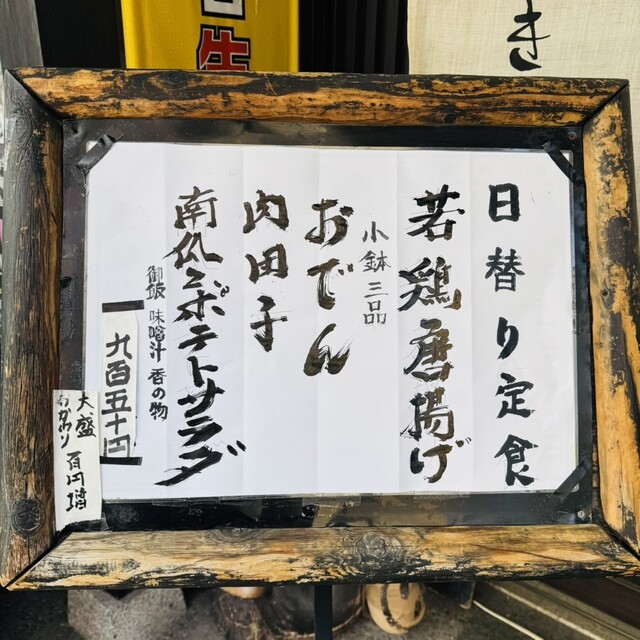 日替り定食
若鶏唐揚げ
小鉢三品
おでん
肉田子
南瓜とポテトサラダ
御飯 味噌汁 香の物
九百五十円
大盛
おかわり 百円増
き
生